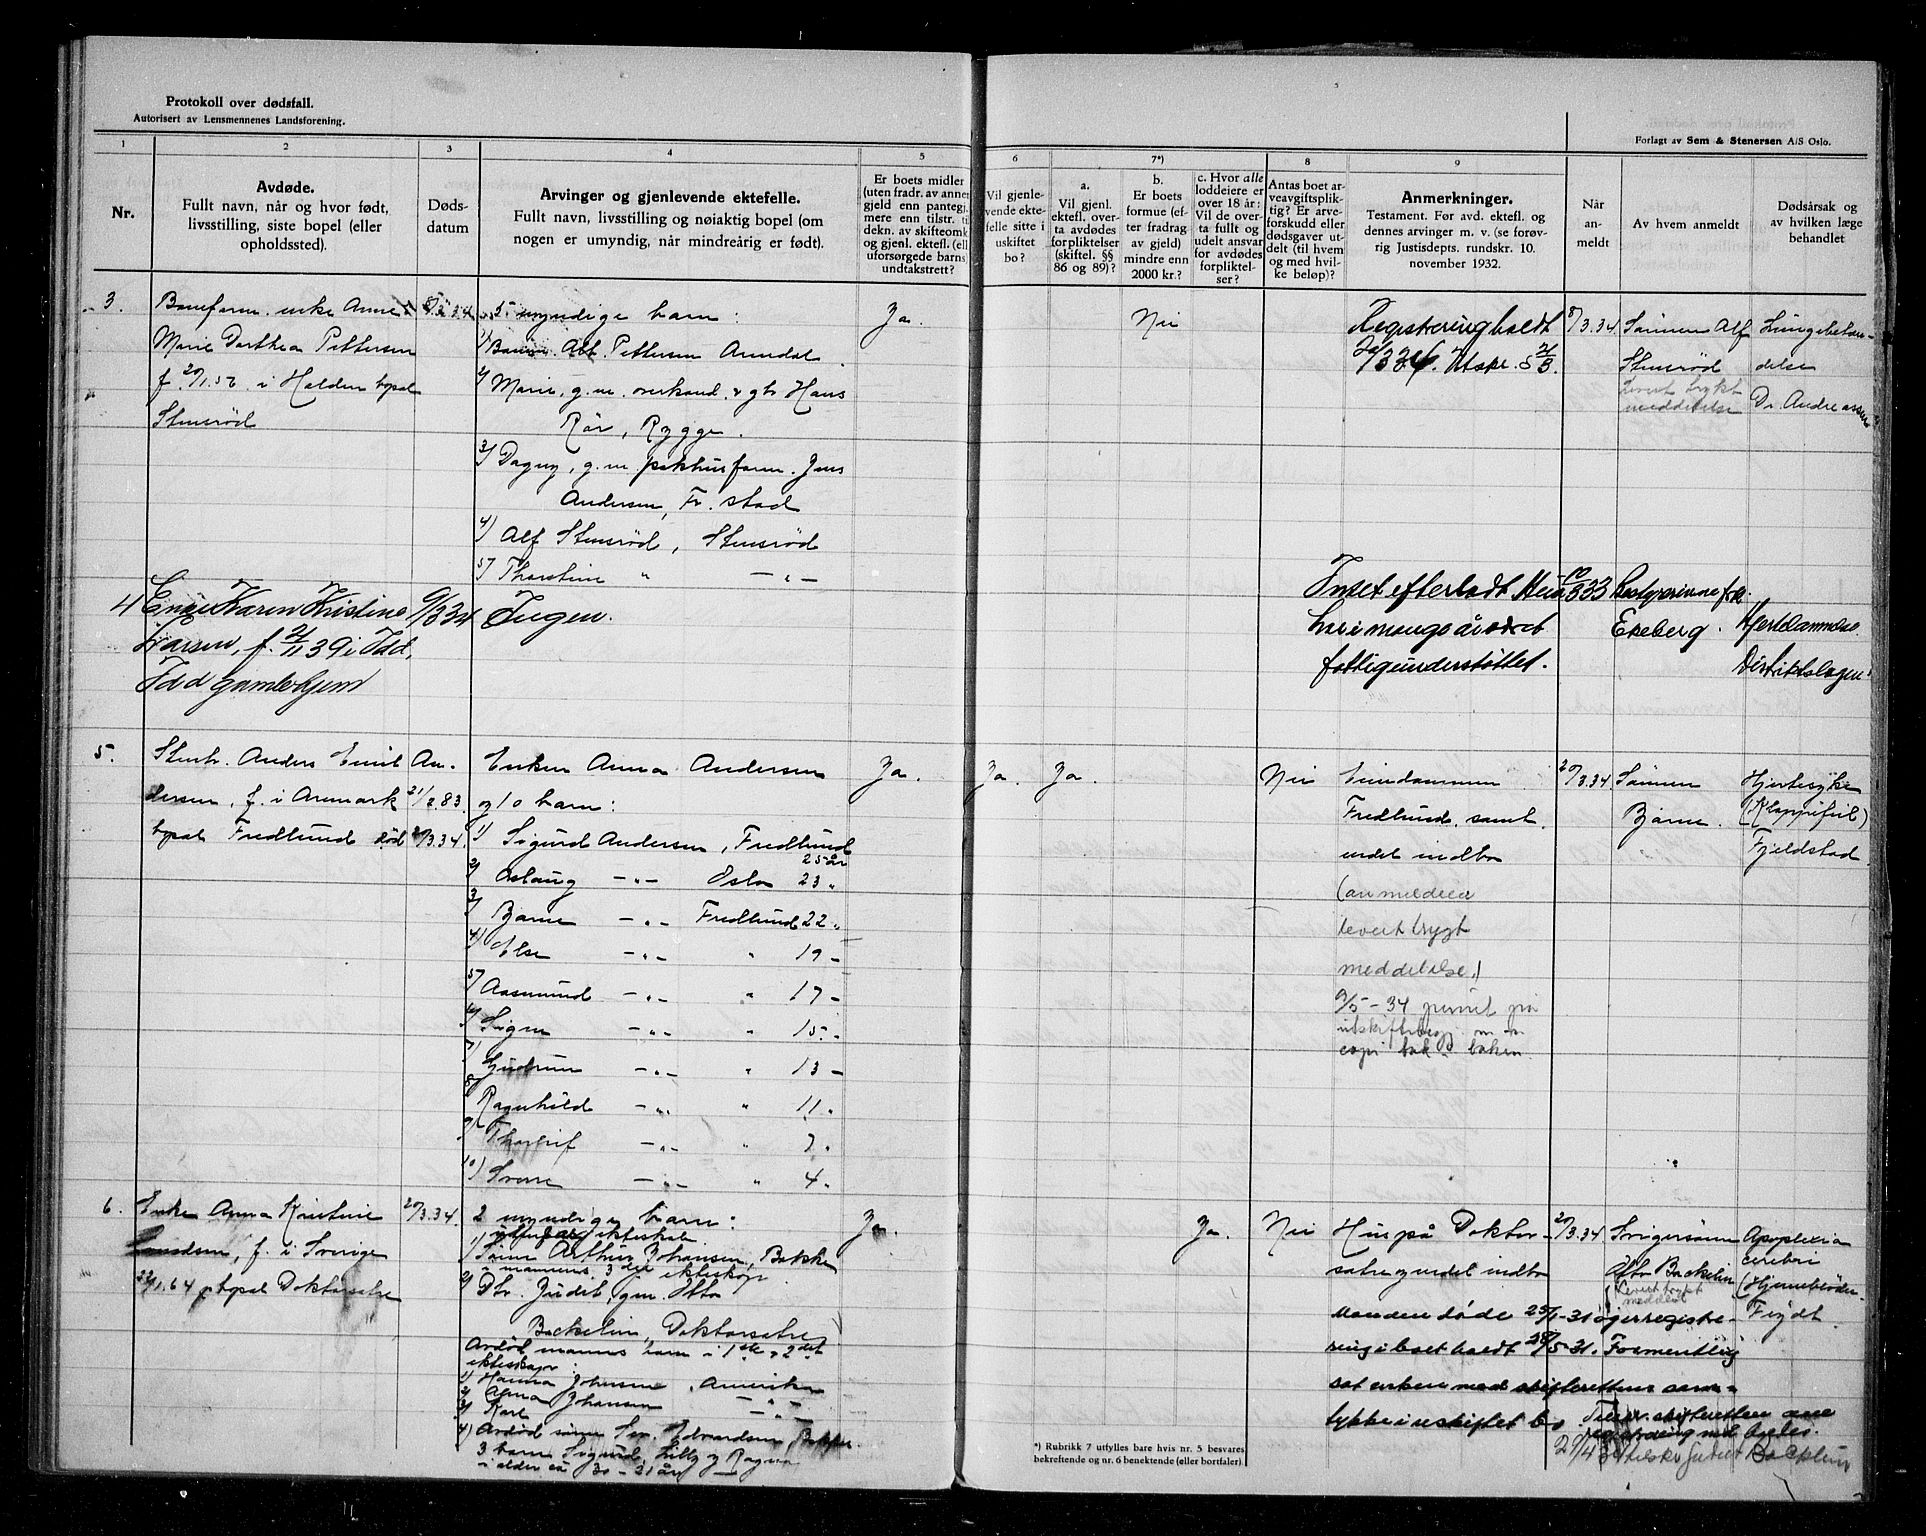 Protokoll over dødsfall.
Autorisert av Lensmennenes Landsforening.
Forlagt av Sem & Stenersen A/S Oslo.
1
2
3
4
5
6
7*)
8
9
Nr.
Avdøde.
Fullt navn, når og hvor født,
livsstilling, siste bopel (eller
opholdssted).
Døds-
datum
Arvinger og gjenlevende ektefelle.
Fullt navn, livsstilling og nøiaktig bopel (om
nogen er umyndig, når mindreårig er født).
Er boets midler
(uten fradr. av annen
gjeld enn pantegj
mere enn tilstr. ti
dekn. av skifteomk
og gjenl. ektefl. (ell
uforsørgede barns)
undtakstrett?
Vil gjenle-
vende ekte-
felle sitte i
uskiftet
bo?
a.
Vil gjenl.
ektefl. over-
ta avdødes
forpliktelser
(skiftel. §§
86 og 89)?
b.
Er boets
formue (ef-
ter fradrag
av gjeld)
mindre enn
2000 kr.?
c. Hvor alle
loddeiere er
over 18 år:
Vil de over-
ta fullt og
udelt ansvar
for avdødes
forpliktel-
ser?
Antas boet ar-
veavgiftsplik-
tig? Er arve-
forskudd eller
dødsgaver ut-
delt (til hvem
og med hvil-
ke beløp)?
Anmerkninger.
Testament. Før avd. ektefl. og
dennes arvinger m. v. (se forøv-
rig Justisdepts. rundskr. 10.
november 1932.
Når
an-
meldt
Av hvem anmeldt
Dødsårsak og
av hvilken læge
behandlet
3.
enke Anne
Marie Dorthea Pettersen
f. 20/1.56 i Halden bopæl
Stenerød
5 myndige barn:
1) Alb. Pettersen Arendal
2) Marie, g.m. Hans
Rør, Rygge.
3) Dagny, g.m. pakhusform. Jens
Andersen, Fr.stad
4) Alf Stenerød, Stenerød
5) Thorstein " — " —
Ja.
Nei
Registrering holdt
8/3.34
Sønnen Alf
Stenerød
levert trykt
meddelelse
Lungebetæn-
delse
Dr. Andreassen
4
Enke Karen Kristine
Larsen, f. 2/11 39 i Idd,
Idd gamlehjem
9/3 34
Ingen.
Intet efterladt
har i mange år været
fattigunderstøttet.
Bestyrerinne frk.
Ekeberg.
Hjertelammelse.
Distriktslægen
5.
Stenh. Anders Emil An-
dersen, f. i Aremark 21/2.83.
bopæl Fredlund død 20/3.34.
Enken Anna Andersen
og 10 barn:
1) Sigurd Andersen, Fredlund
25 år
2) Aslaug — " — Oslo 23 "
3) Bjarne — " — Fredlund 22 "
4) Else — " — " 19 -
5) Aasmund — " — " 17 -
6) Signe — " — " 15 -
7) Gudrun — " — " 13 -
8) Ragnhild — " — " 11 "
9) Thorleif — " — " 7 "
10) Sverre — " — " 4 "
Ja.
Ja.
Ja.
Nei
Eiendommen
Fredlund, samt
endel indbo
(anmelder
levert trygt
meddelelse)
9/5-34 på
bak boken
20/3.34
Sønnen
Bjarne.
Hjertesyke
(Klappefeil)
Fjeldstad
6.
Enke Anna Kristine
Knudsen, f. i Sverige
22/1.64 bopæl Doktorsætre
20/3.34.
2 myndige barn:
utenfor ekteskab
1) Sønn Arthur Johansen, Bakke
i mannens 3 dje ekteskap
2) Dtr. Judit, gm. Otto
Backelin, Doktorsætre
Avdød manns barn i 1ste og 2det
ekteskap:
1) Hanna Johansen, Amerika
2) Anna Johansen — " —
3) Karl — " —
4) Avdød sønn Edvardsen
3 barn Sigurd, og Ragna
i alder ca 30 - 21 år
Ja.
Ja.
Nei
Hus på Doktor-
sætre og endel indbo
Manden døde 25/1-31 registre-
ring i boet holdt 28/5-31. Formentlig
sat enken med skifterettens sam-
tykke i uskiftet bo.
20/3.34
Svigersønn
Otto Backelin
levert trykt
meddelt
Apoplexia
cerebri
(Hjerneblødn-
Backelin
*) Rubrikk 7 utfylles bare hvis nr. 5 besvares
bekreftende og nr. 6 benektende (eller bortfaler).